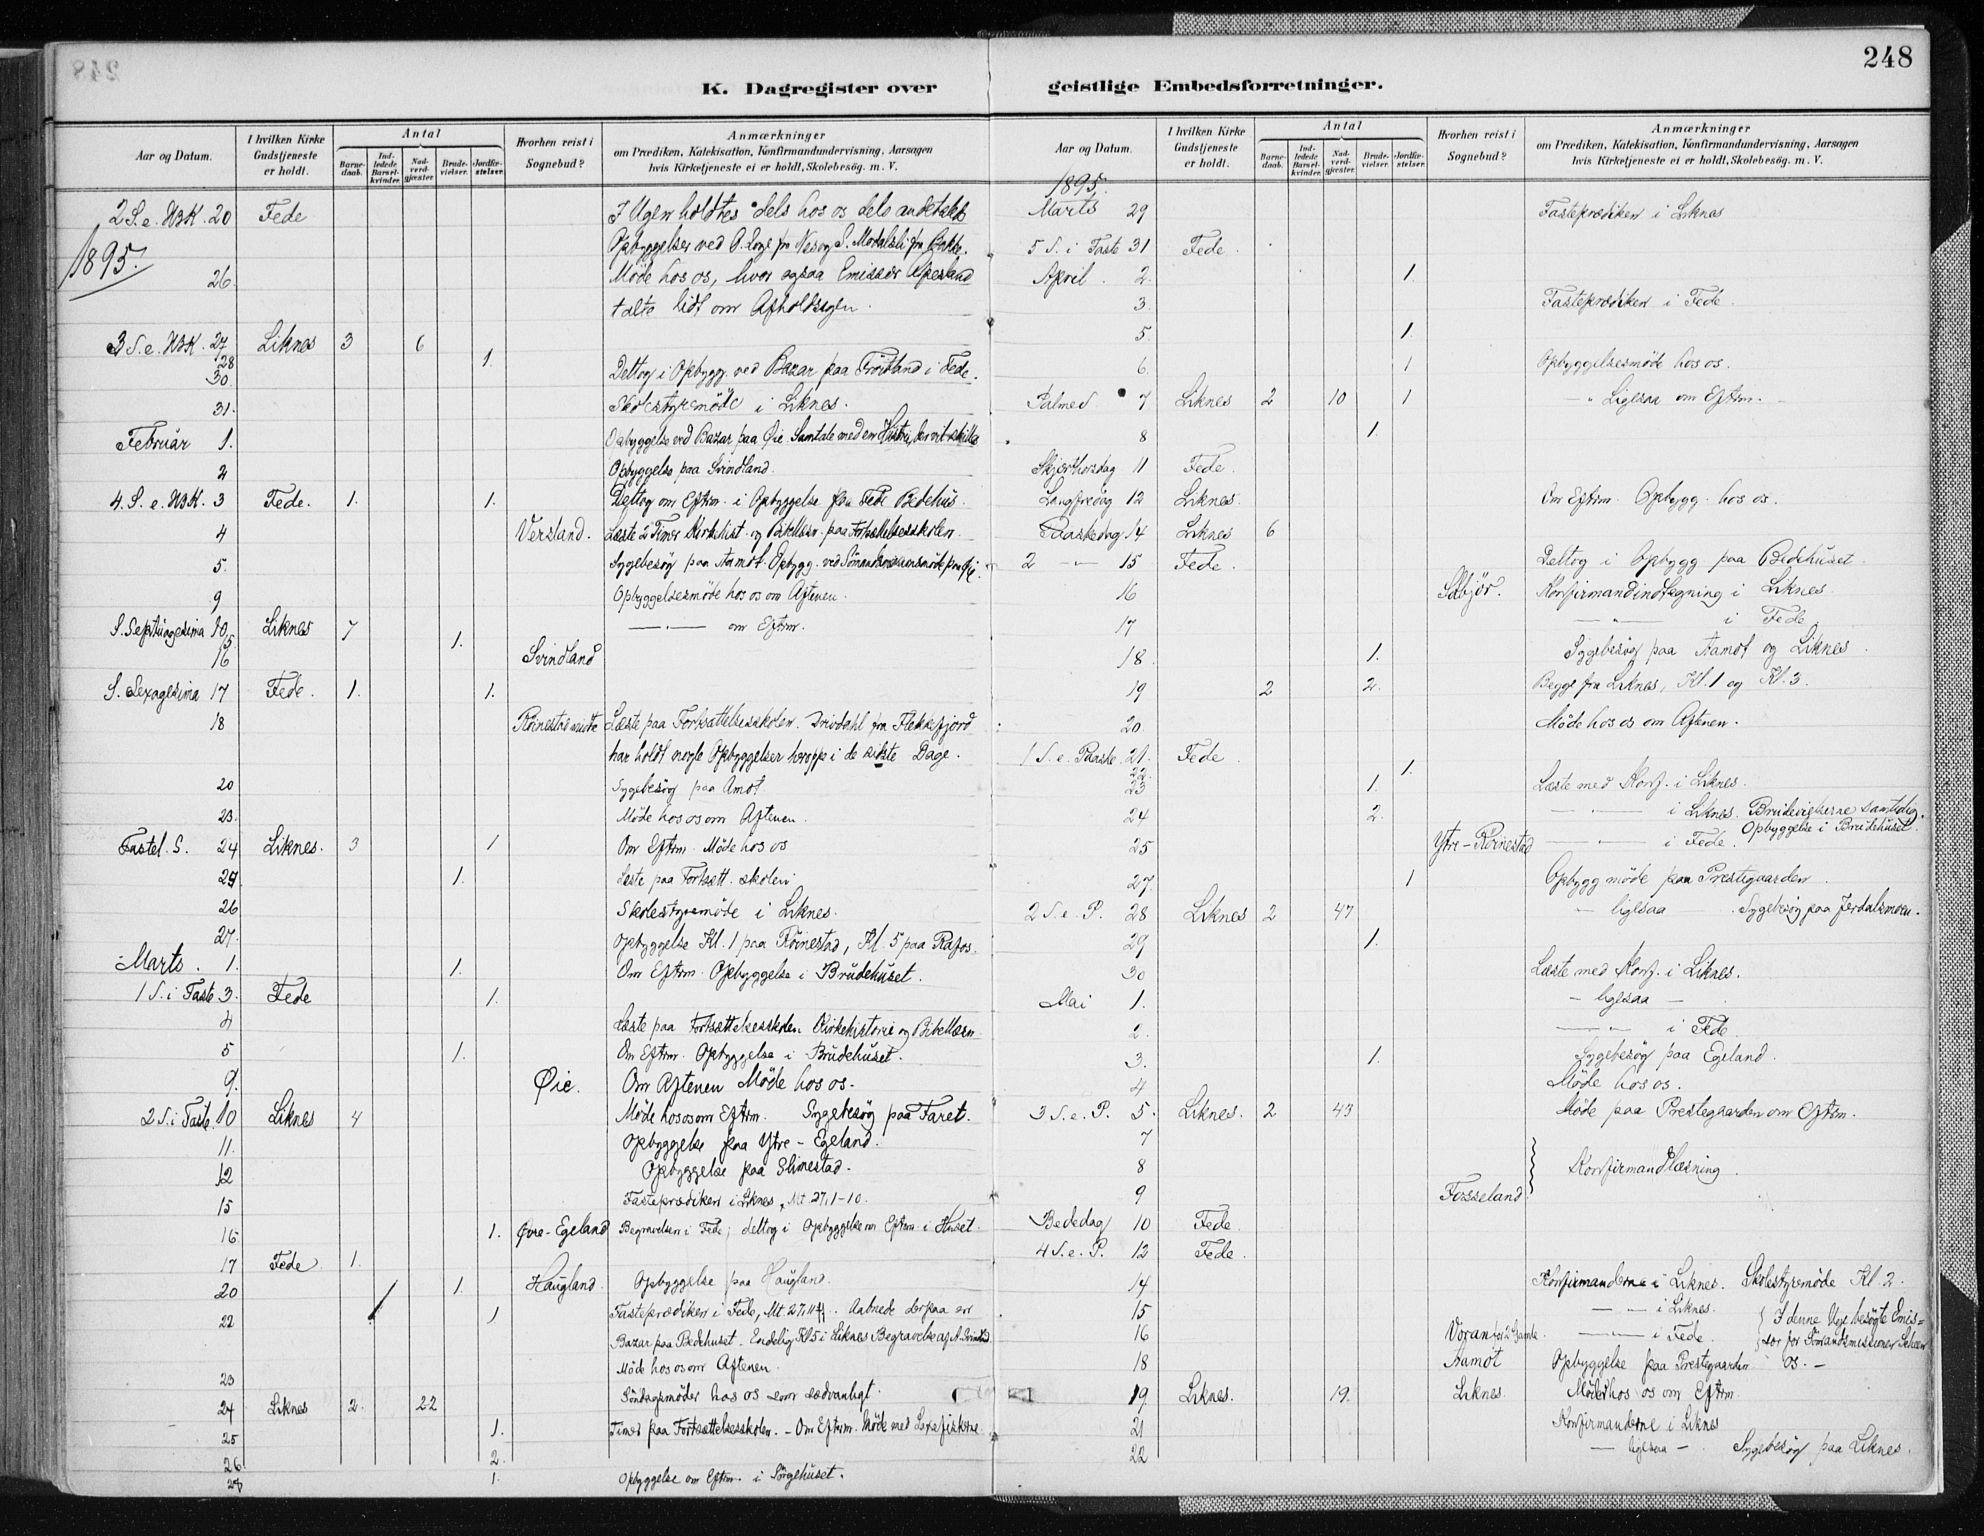 248
K. Dagregister over geistlige Embedsforretninger.
Aar og Datum. I hvilken Kirke Gudstjeneste er holdt. Antal Barnedaab. Indledede Barselkvinder. Nadverdgjæster. Brudevielser. Jordfæstelser. Hvorhen reist i Sognebud? Anmærkninger om Prædiken, Katekisation, Konfirmandundervisning, Aarsagen hvis Kirketjeneste ei er holdt, Skolebesög. m. V.
2 S. e. H3K. 20 Fede I Ugen holdtes dels hos os dels andetsteds
1895. Opbyggelser ved
26. Möde hos os, hvor ogsaa Emissær
talte lidt om Afholdssagen.
3 S. e. H3K. 27 Liknes 3 6
28 1.
30. Deltog i Opbygg. ved Bazar paa Fröitland i Fede.
31. Skolestyremöde i Liknes.
Februar 1. Opbyggelse ved Bazar paa Øie. Samtale med en Hustru, der vil skilles
2 Opbyggelse paa Svindland.
4. S. e. H3K. 3 Fede. 1. 1. Deltog om Eftrm. i Opbyggelse paa Fede Bedehus.
4 Versland. Læste 2 Timer Kirkehist. og Bibellæsn. paa Fortsættelsesskolen.
5. Sygebesög paa Aamot. Opbygg. ved
9 Opbyggelsesmöde hos os om Aftenen.
S. Septuagesima 10 Liknes 7 — " — om Eftrm.
15 1.
16 Svindland
S. Sexagesima 17 Fede. 1. 1.
18 Röinestad Læste paa Fortsættelsesskolen. fra Flekkefjord
har holdt nogle Opbyggelser heroppe i de sidste Dage.
20 Sygebesög paa Amot
23. Möde hos os om Aftenen.
Fastel. S. 24 Liknes. 3 1 Om Eftrm. Möde hos os
25 1. Læste paa Fortsætt. skolen.
26 Skolestyremöde i Liknes.
27. Opbyggelse Kl. 1 paa Röinestad, Kl. 5 paa Rafos.
Marts. 1. 1. Om Eftrm. Opbyggelse i Brudehuset.
1 S. i Faste 3. Fede 1.
4 Læste paa Fortsættelsesskolen Kirkehistorie og Bibellæsn.
5 1. Om Eftrm. Opbyggelse i Brudehuset.
9. Øie. Om Aftenen Möde hos os.
2 S. i Faste 10 Liknes 4 Möde hos os om Eftrm. Sygebesög paa Faret.
11. Opbyggelse paa Ytre-Egeland.
12 Opbyggelse paa Slimestad.
15 Fasteprædiken i Liknes, Mt. 27, 1-10.
16 1. Øvre-Egeland Begravelsen i Fede; deltog i Opbyggelse om Eftrm. i Huset.
17 Fede 1.
20 1. Haugland. Opbyggelse paa Haugland.
22 1 Fasteprædiken i Fede, Mt 27, 11ff. Aabnede derpaa en
Bazar paa Bedehuset. Endelig Kl 5 i Liknes Begravelse af
23 Möde hos os om Aftenen.
24 Liknes 2. 22 Söndagsmöder hos os som sædvanligt.
25 1. Timer paa Fortsættelsesskolen. - Om Eftrm. Möde med
26 2.
28 1. Opbyggelse om Eftrm. i Sörgehuset.
Aar og Datum. I hvilken Kirke Gudstjeneste er holdt. Antal Barnedaab. Indledede Barselkvinder. Nadverdgjæster. Brudevielser. Jordfæstelser. Hvorhen reist i Sognebud? Anmærkninger om Prædiken, Katekisation, Konfirmandundervisning, Aarsagen hvis Kirketjeneste ei er holdt, Skolebesög. m. V.
1895.
Marts 29 Fasteprædiken i Liknes
5 S. i Faste 31 Fede.
April 2. 1.
3. Fasteprædiken i Fede.
5 1.
6. 1 Opbyggelsesmöde hos os.
Palmes. 7 Liknes 2 10 1 — " Ligesaa om Eftrm. —
8 1.
Skjærthorsdag 11 Fede.
Langfredag 12 Liknes. Om Eftrm. Opbygg. hos os.
Paaskedag 14 Liknes 6
2 — " — 15 Fede. Deltog i Opbygg paa Bedehuset.
16 Sæbjör. Konfirmandindtegning i Liknes
17 — " — i Fede
18. 1. Sygebesög paa Aamot og Liknes.
19 2 2. Begge fra Liknes, Kl. 1 og Kl. 3.
20 Möde hos os om Aftenen.
1 S. e. Paaske. 21. Fede
22. 1.
23 1. Læste med Konf. i Liknes.
24 2. — " — i Liknes. Brudevielserne samtidig.
25 Ytre-Röinestad — " — i Fede. Opbyggelse i Brudehuset.
27. 1 Opbygg möde paa Prestegaarden.
2 S. e. P. 28 Liknes 2 47 — ligesaa — . Sygebesög paa Jerdalsmoen.
29 1.
30 Læste med Konf. i Liknes.
Mai 1. — ligesaa —
2. — " — i Fede.
3. 1. Sygebesög paa Egeland.
4 Möde hos os.
3 S. e. P. 5. Liknes. 2 43 Möde paa Prestegaarden om Eftrm.
7
8 Konfirmandlæsning
9 Fosseland
Bededag 10 Fede.
4 S. e. P. 12 Fede.
14 Konfirmanderne i Liknes. Skolestyremöde Kl. 2.
15 — " — i Liknes. I denne Uge besögte Emis=
16 Voran for 2 Gamle. — " — i Fede. sær for Sömandsmissionen
18 Aamöt Opbyggelse paa Prestegaarden os. —
19. Liknes. 19. Liknes. Möde hos os om Eftrm.
21 Konfirmanderne i Liknes
22 — ligesaa — . Sygebesög paa Liknes.